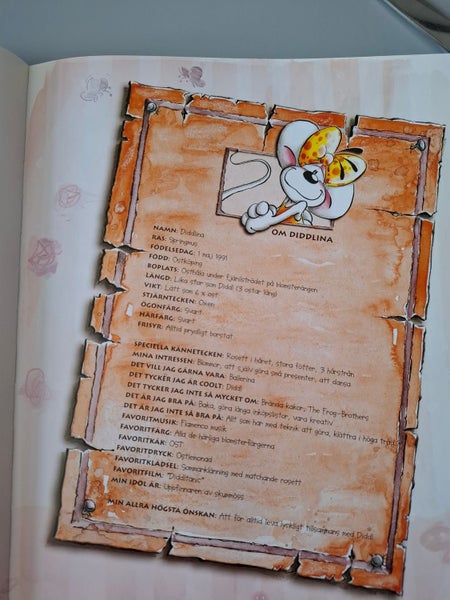 OM DIDDLINA
NAMN: Diddlina
RAS: Springmus
FÖDELSEDAG: 1 maj 1991
FÖDD: Ostköping
BOPLATS: Osthåla under fjärilsträdet på blomsterängen
LÄNGD: Lika stor som Diddl (3 ostar lång)
VIKT: Lätt som 6 x ost
STJÄRNTECKEN: Oxen
ÖGONFÄRG: Svart
HÅRFÄRG: Svart
FRISYR: Alltid prydligt borstat
SPECIELLA KÄNNETECKEN: Rosett i håret, stora fötter, 3 hårstrån
MINA INTRESSEN: Blommor, att själv göra små presenter, att dansa
DET VILL JAG GÄRNA VARA: Ballerina
DET TYCKER JAG ÄR COOLT: Diddl
DET TYCKER JAG INTE SÅ MYCKET OM: Brända kakor, The Frog-Brothers
DET ÄR JAG BRA PÅ: Baka, göra långa inköpslistor, vara kreativ
DET ÄR JAG INTE SÅ BRA PÅ: Allt som har med teknik att göra, klättra i höga träd
FAVORITMUSIK: Flamenco musik
FAVORITFÄRG: Alla de härliga blomsterfärgerna
FAVORITKÄK: OST
FAVORITDRYCK: Ostlemonad
FAVORITKLÄDSEL: Sommarklänning med matchande rosett
FAVORITFILM: "Diddltanic"
MIN IDOL ÄR: Uppfinnaren av skummöss
MIN ALLRA HÖGSTA ÖNSKAN: Att för alltid leva lyckligt tillsammans med Diddl